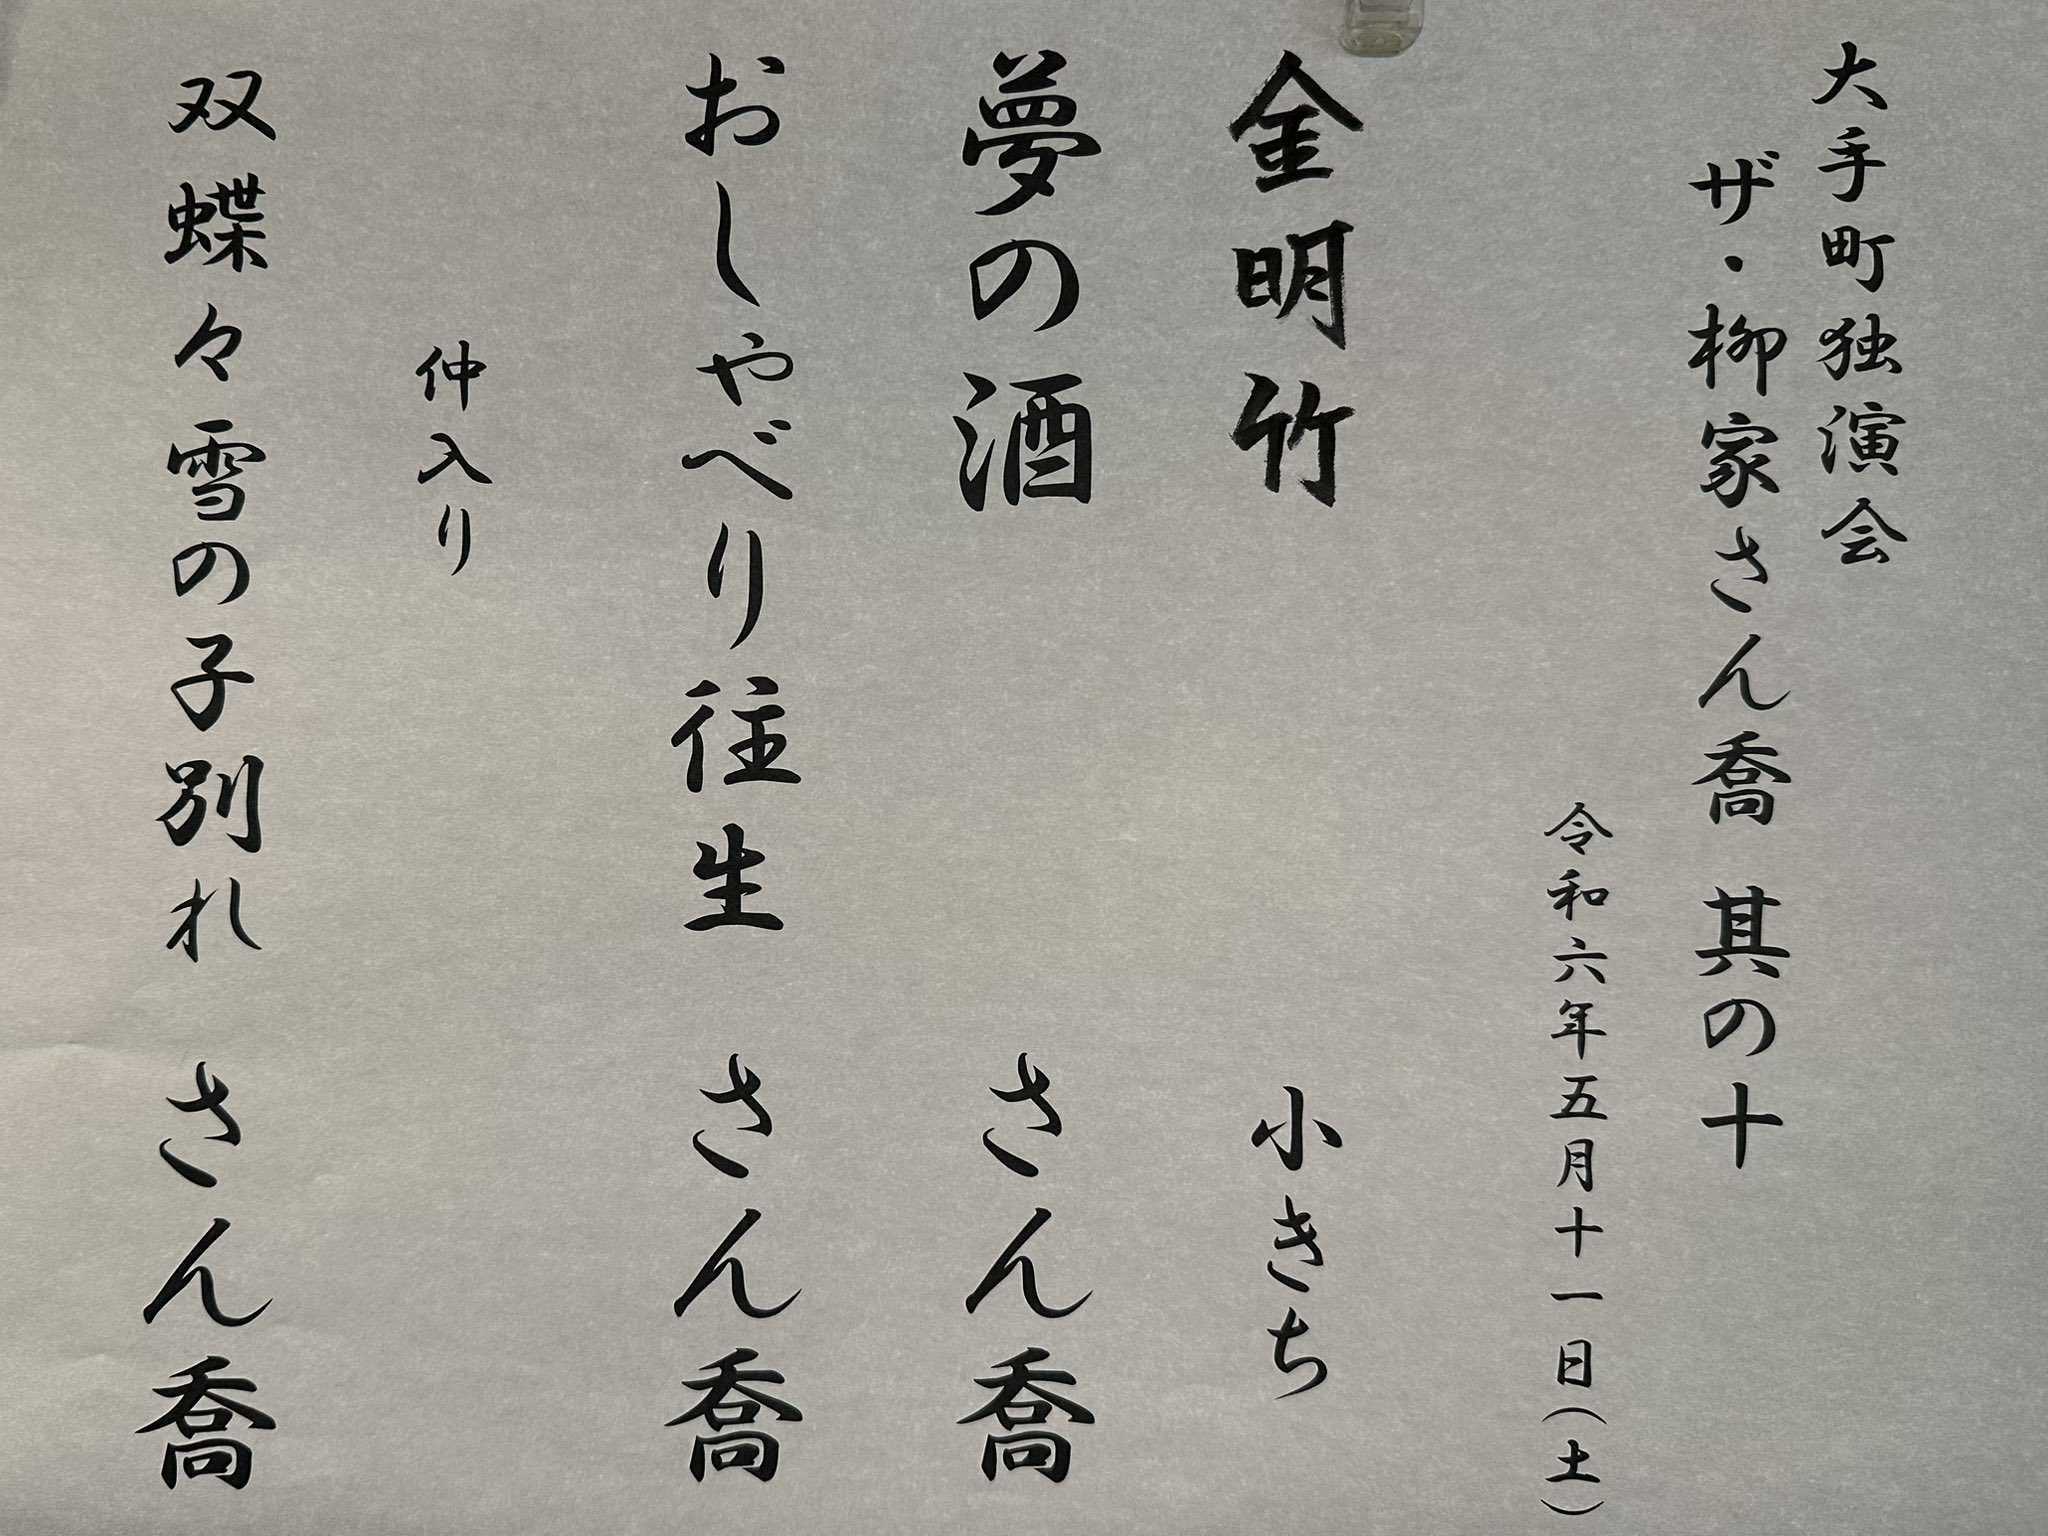 大手町独演会
ザ・柳家さん喬 其の十
令和六年五月十一日(土)
金明竹 小きち
夢の酒 さん喬
おしゃべり往生 さん喬
仲入り
双蝶々雪の子別れ さん喬